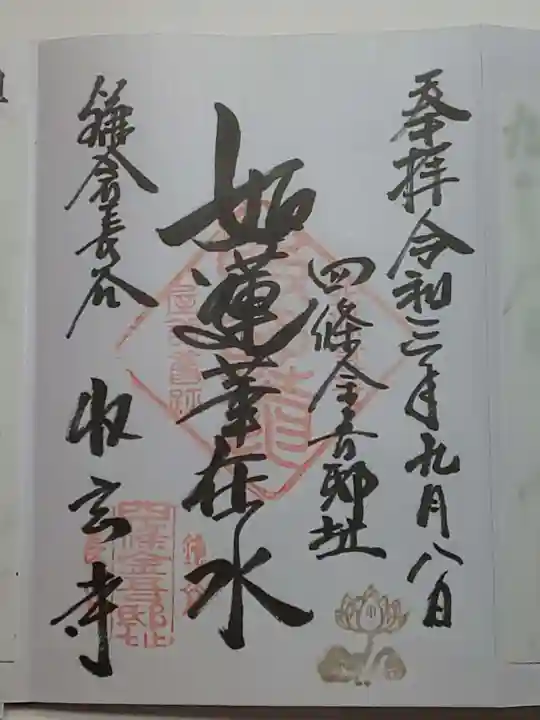 奉拝 令和三年九月八日
四條金吾邸址
如蓮華在水
鎌倉長谷 収玄寺
四條金吾邸址